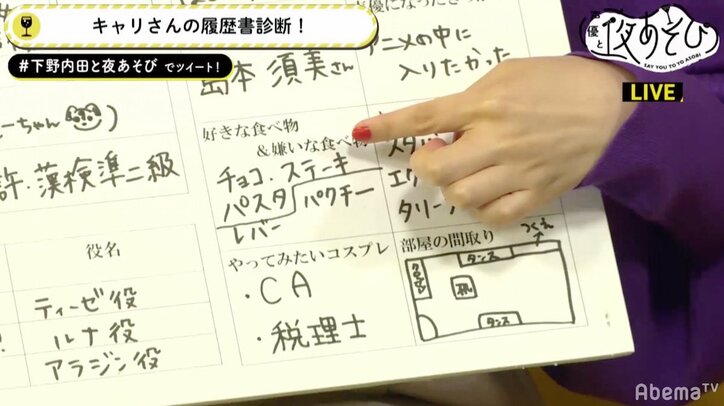 キャリさんの履歴書診断！
#下野内田と夜あそび でツイート！
声優と夜あそび
SAY YOU TO YO ASOBI
LIVE
島本 須美さん
アニメの中に
入りたかった
ーちゃん
許・漢検準二級
好きな食べ物
＆嫌いな食べ物
チョコ・ステーキ
パスタ
レバー
パクチー
スタバ
エク
タリー
役名
ティーゼ役
ルナ役
アラジン役
やってみたいコスプレ
・CA
・税理士
部屋の間取り
つくえ
タンス
机
タンス
AbemaTV